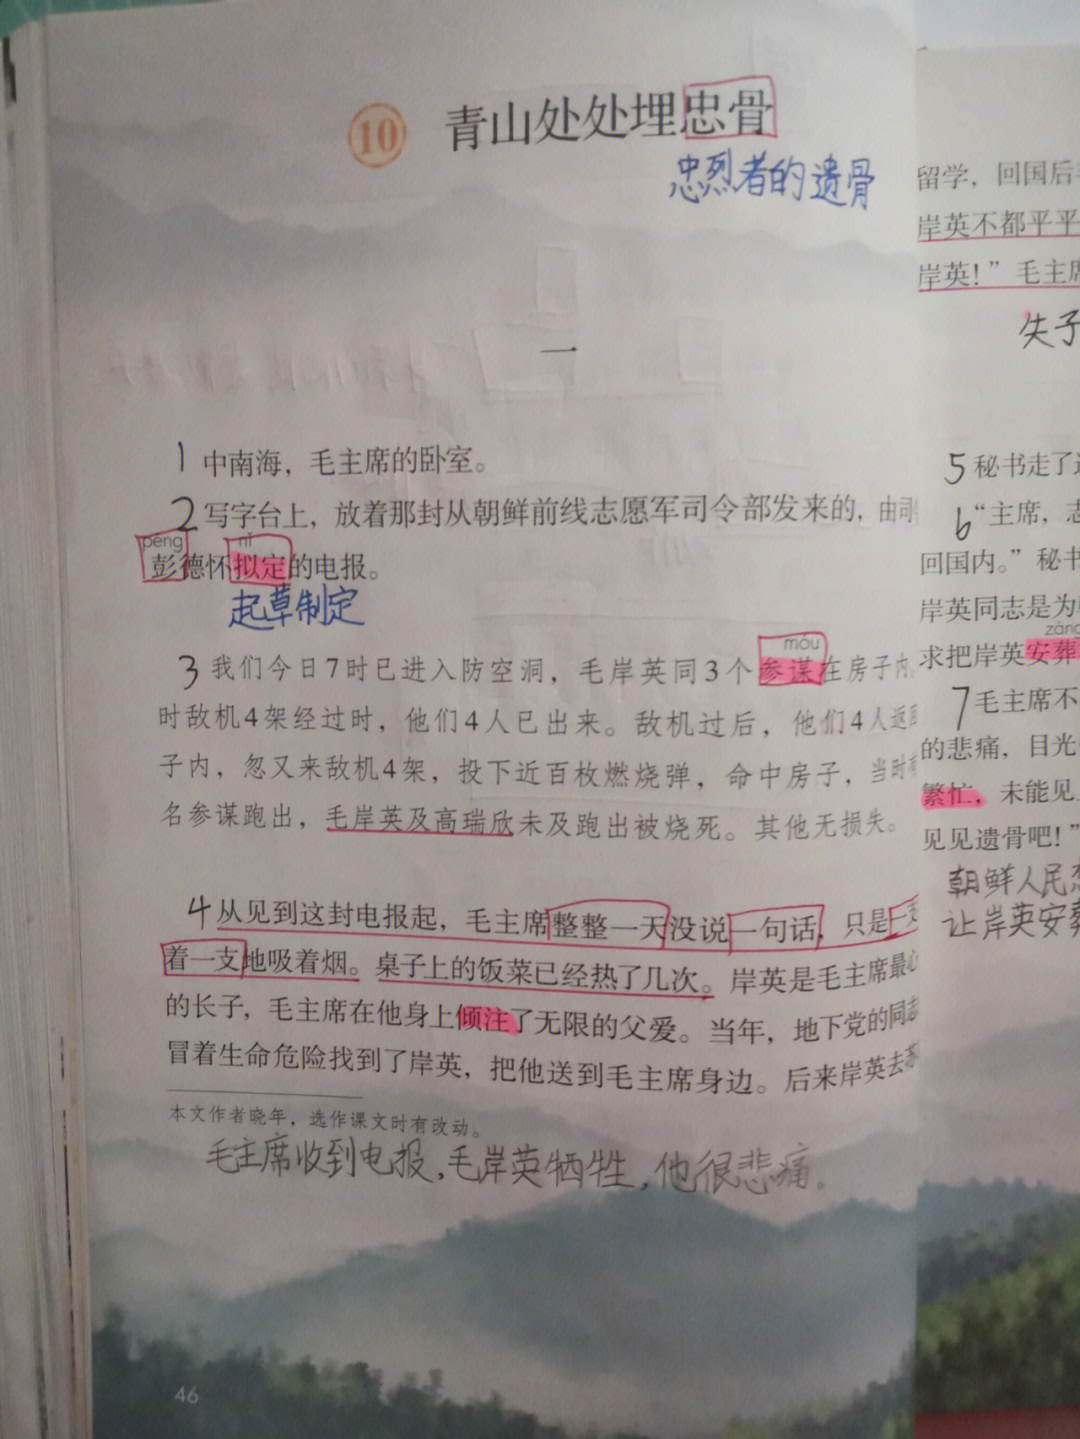 10 青山处处埋忠骨
忠烈者的遗骨
一
1 中南海，毛主席的卧室。
2 写字台上，放着那封从朝鲜前线志愿军司令部发来的，由司
péng nǐ
彭德怀拟定的电报。
起草制定
móu
3 我们今日7时已进入防空洞，毛岸英同3个参谋在房子内，
时敌机4架经过时，他们4人已出来。敌机过后，他们4人返回
子内，忽又来敌机4架，投下近百枚燃烧弹，命中房子，当时有
名参谋跑出，毛岸英及高瑞欣未及跑出被烧死。其他无损失。
4 从见到这封电报起，毛主席整整一天没说一句话，只是一支
着一支地吸着烟。桌子上的饭菜已经热了几次。岸英是毛主席最心
的长子，毛主席在他身上倾注了无限的父爱。当年，地下党的同志
冒着生命危险找到了岸英，把他送到毛主席身边。后来岸英去
本文作者晓年，选作课文时有改动。
毛主席收到电报，毛岸英牺牲，他很悲痛。
46
留学，回国后
岸英不都平平
岸英！”毛主席
失子
5 秘书走了
6 “主席，志
回国内。”秘书
岸英同志是为
zàng
求把岸英安葬
7 毛主席不
的悲痛，目光
繁忙，未能见
见见遗骨吧！”
朝鲜人民想
让岸英安葬